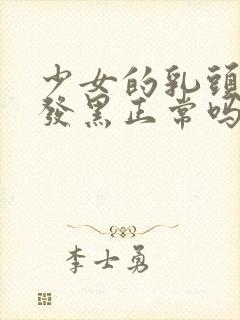 少女的乳頭
發黑正常嗎
李士勇